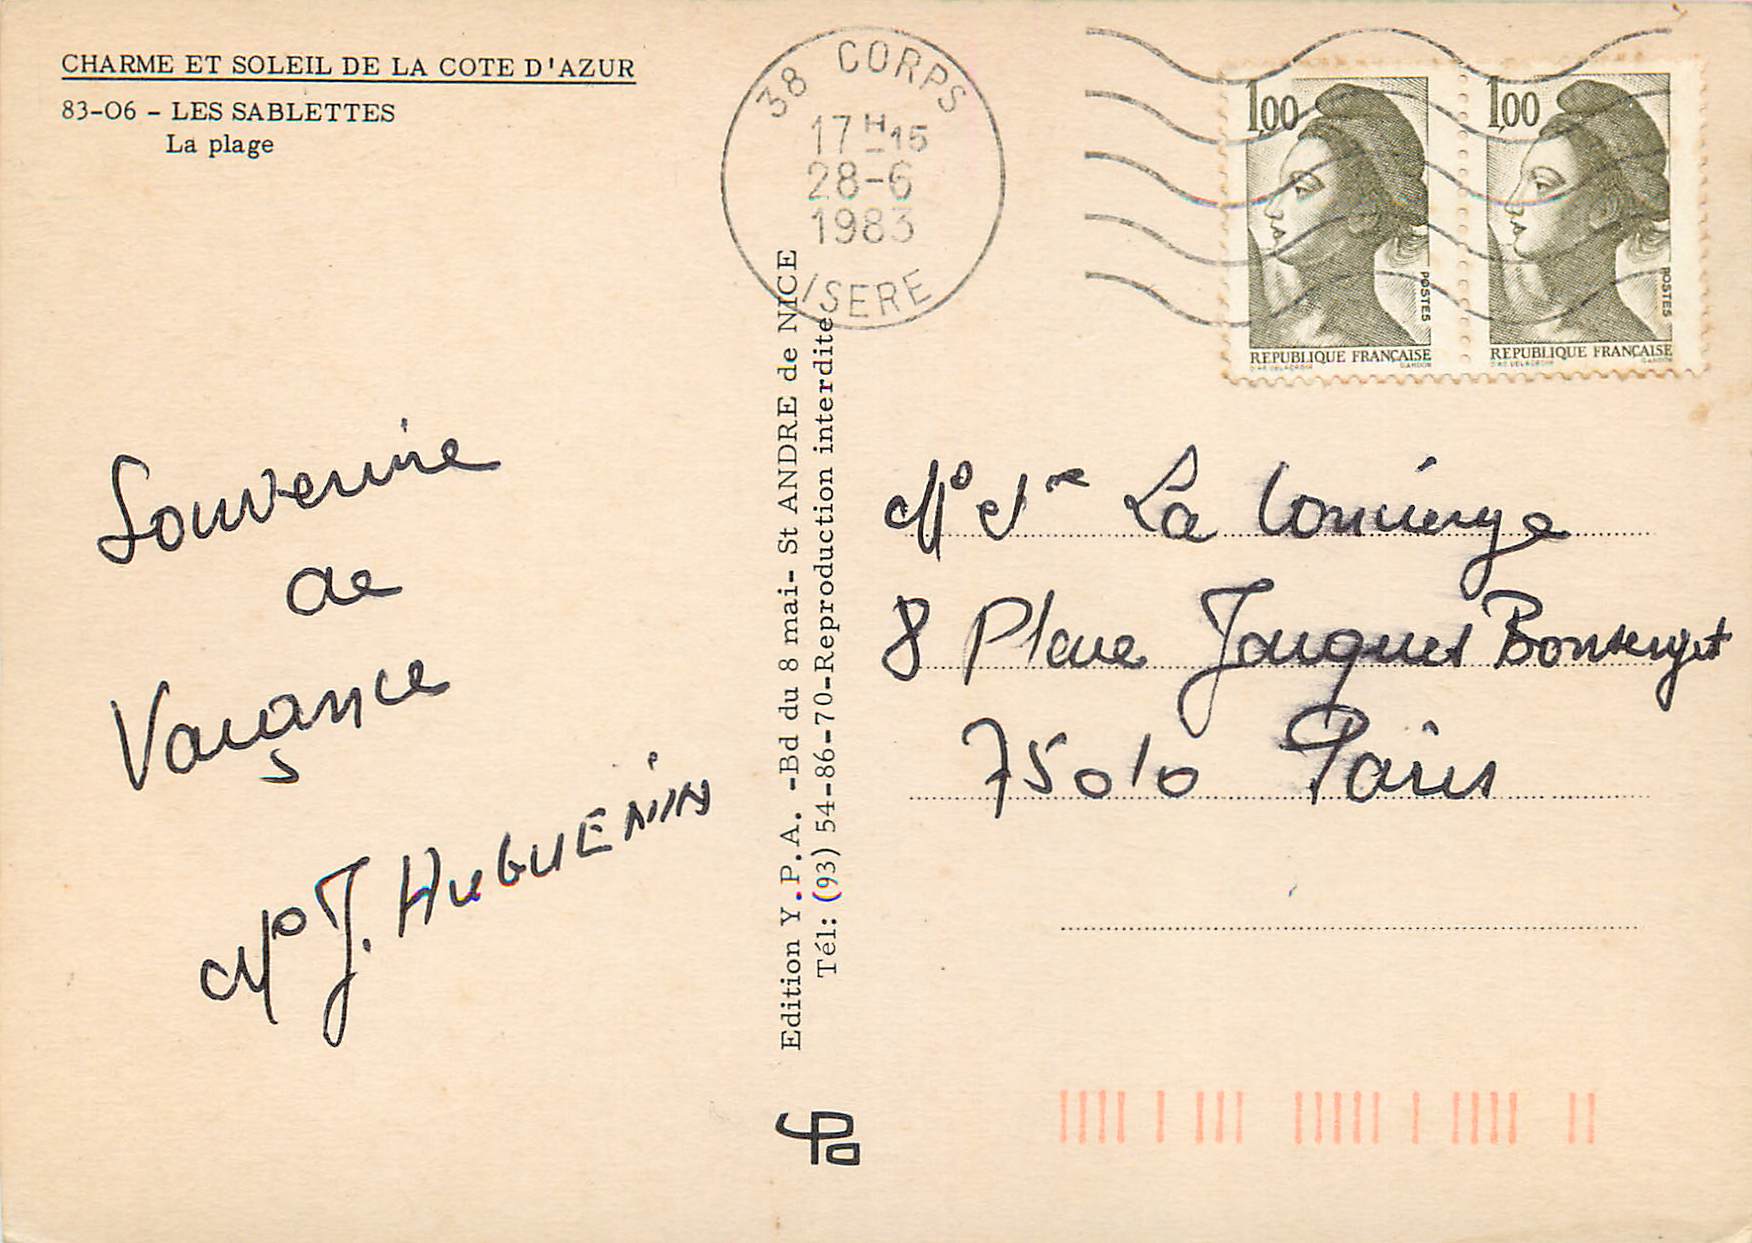 CHARME ET SOLEIL DE LA COTE D'AZUR
83-06 - LES SABLETTES
La plage
38 CORPS
17 H 15
28-6
1983
ISERE
1,00
POSTES
REPUBLIQUE FRANÇAISE
1,00
POSTES
REPUBLIQUE FRANÇAISE
Souvenire
de
Vacançe
Mº J. HUGUENIN
Edition Y.P.A. -Bd du 8 mai- St ANDRE de NICE
Tél: (93) 54-86-70-Reproduction interdite
La Concierge
8 Place Jacques Bonsergent
75010 Paris